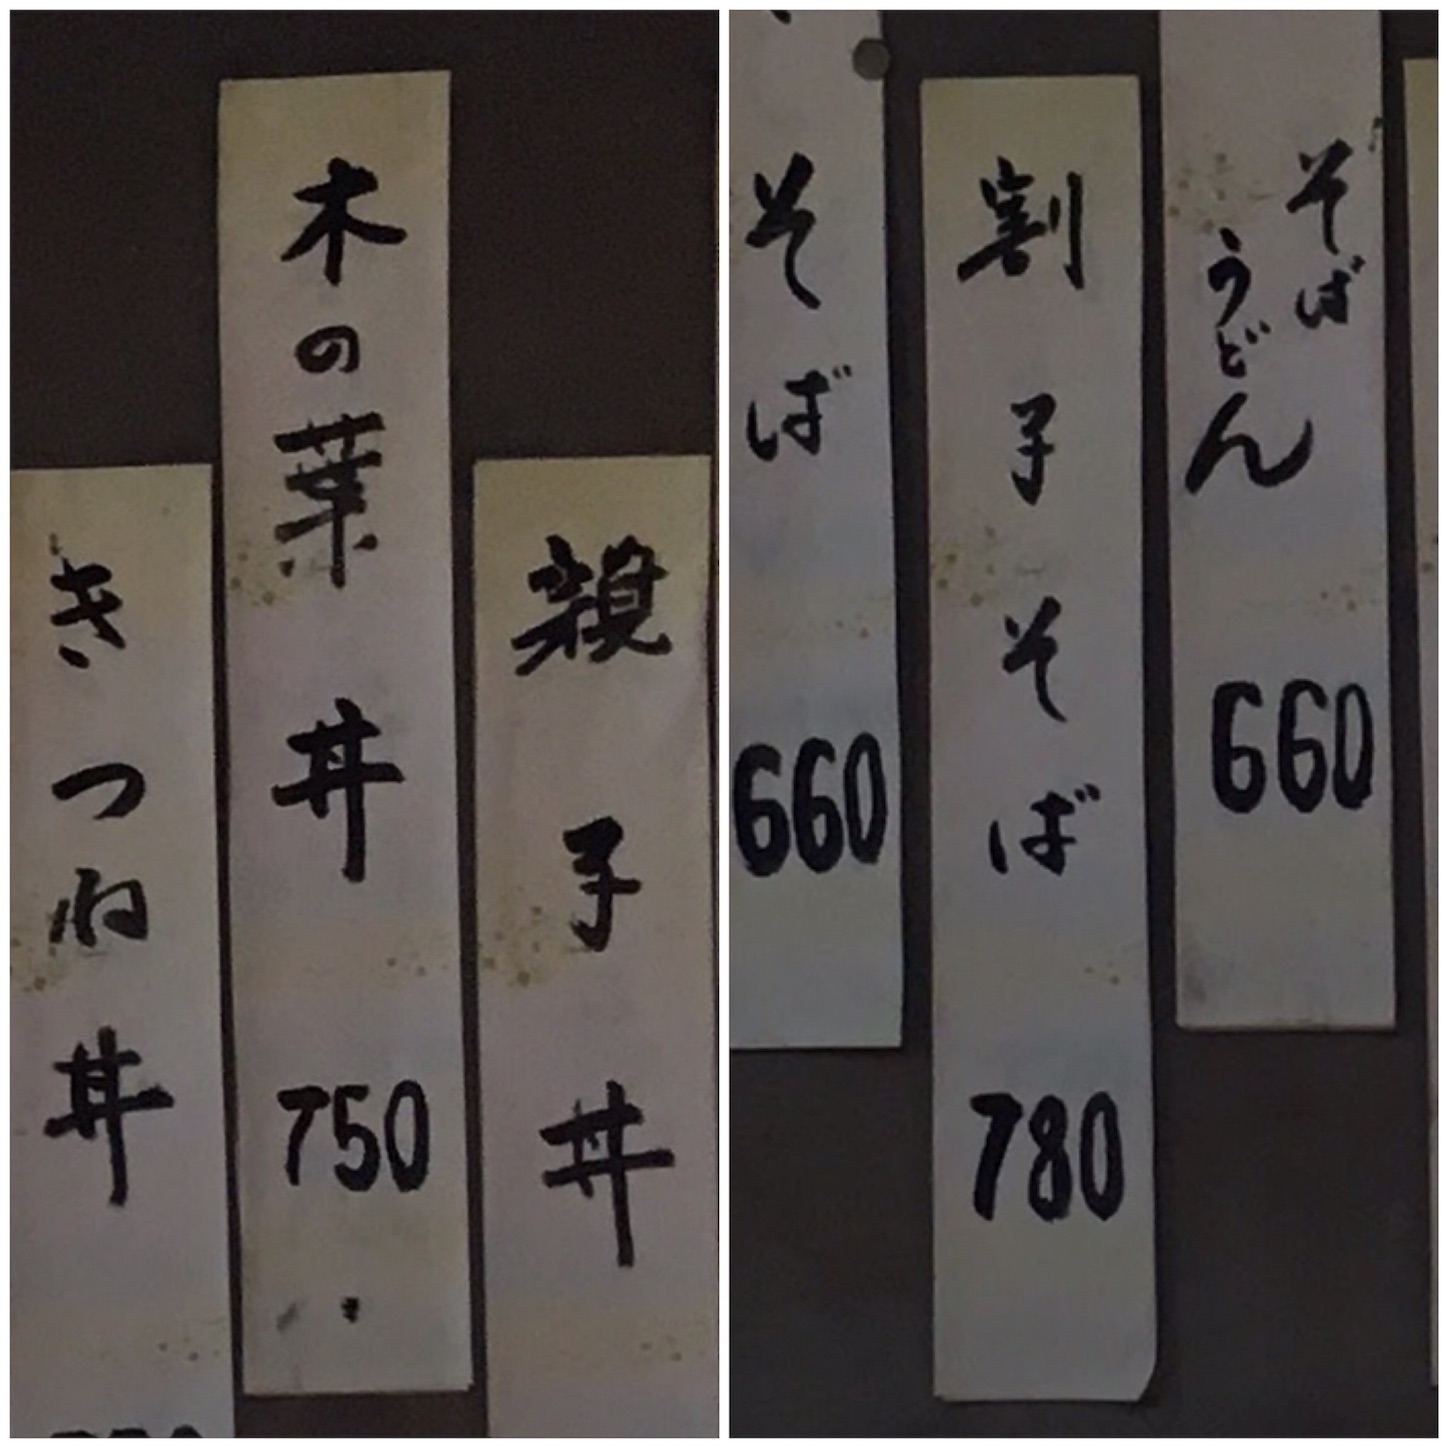 きつね丼
木の葉丼
750
親子丼
そば
660
割子そば
780
そば
うどん
660